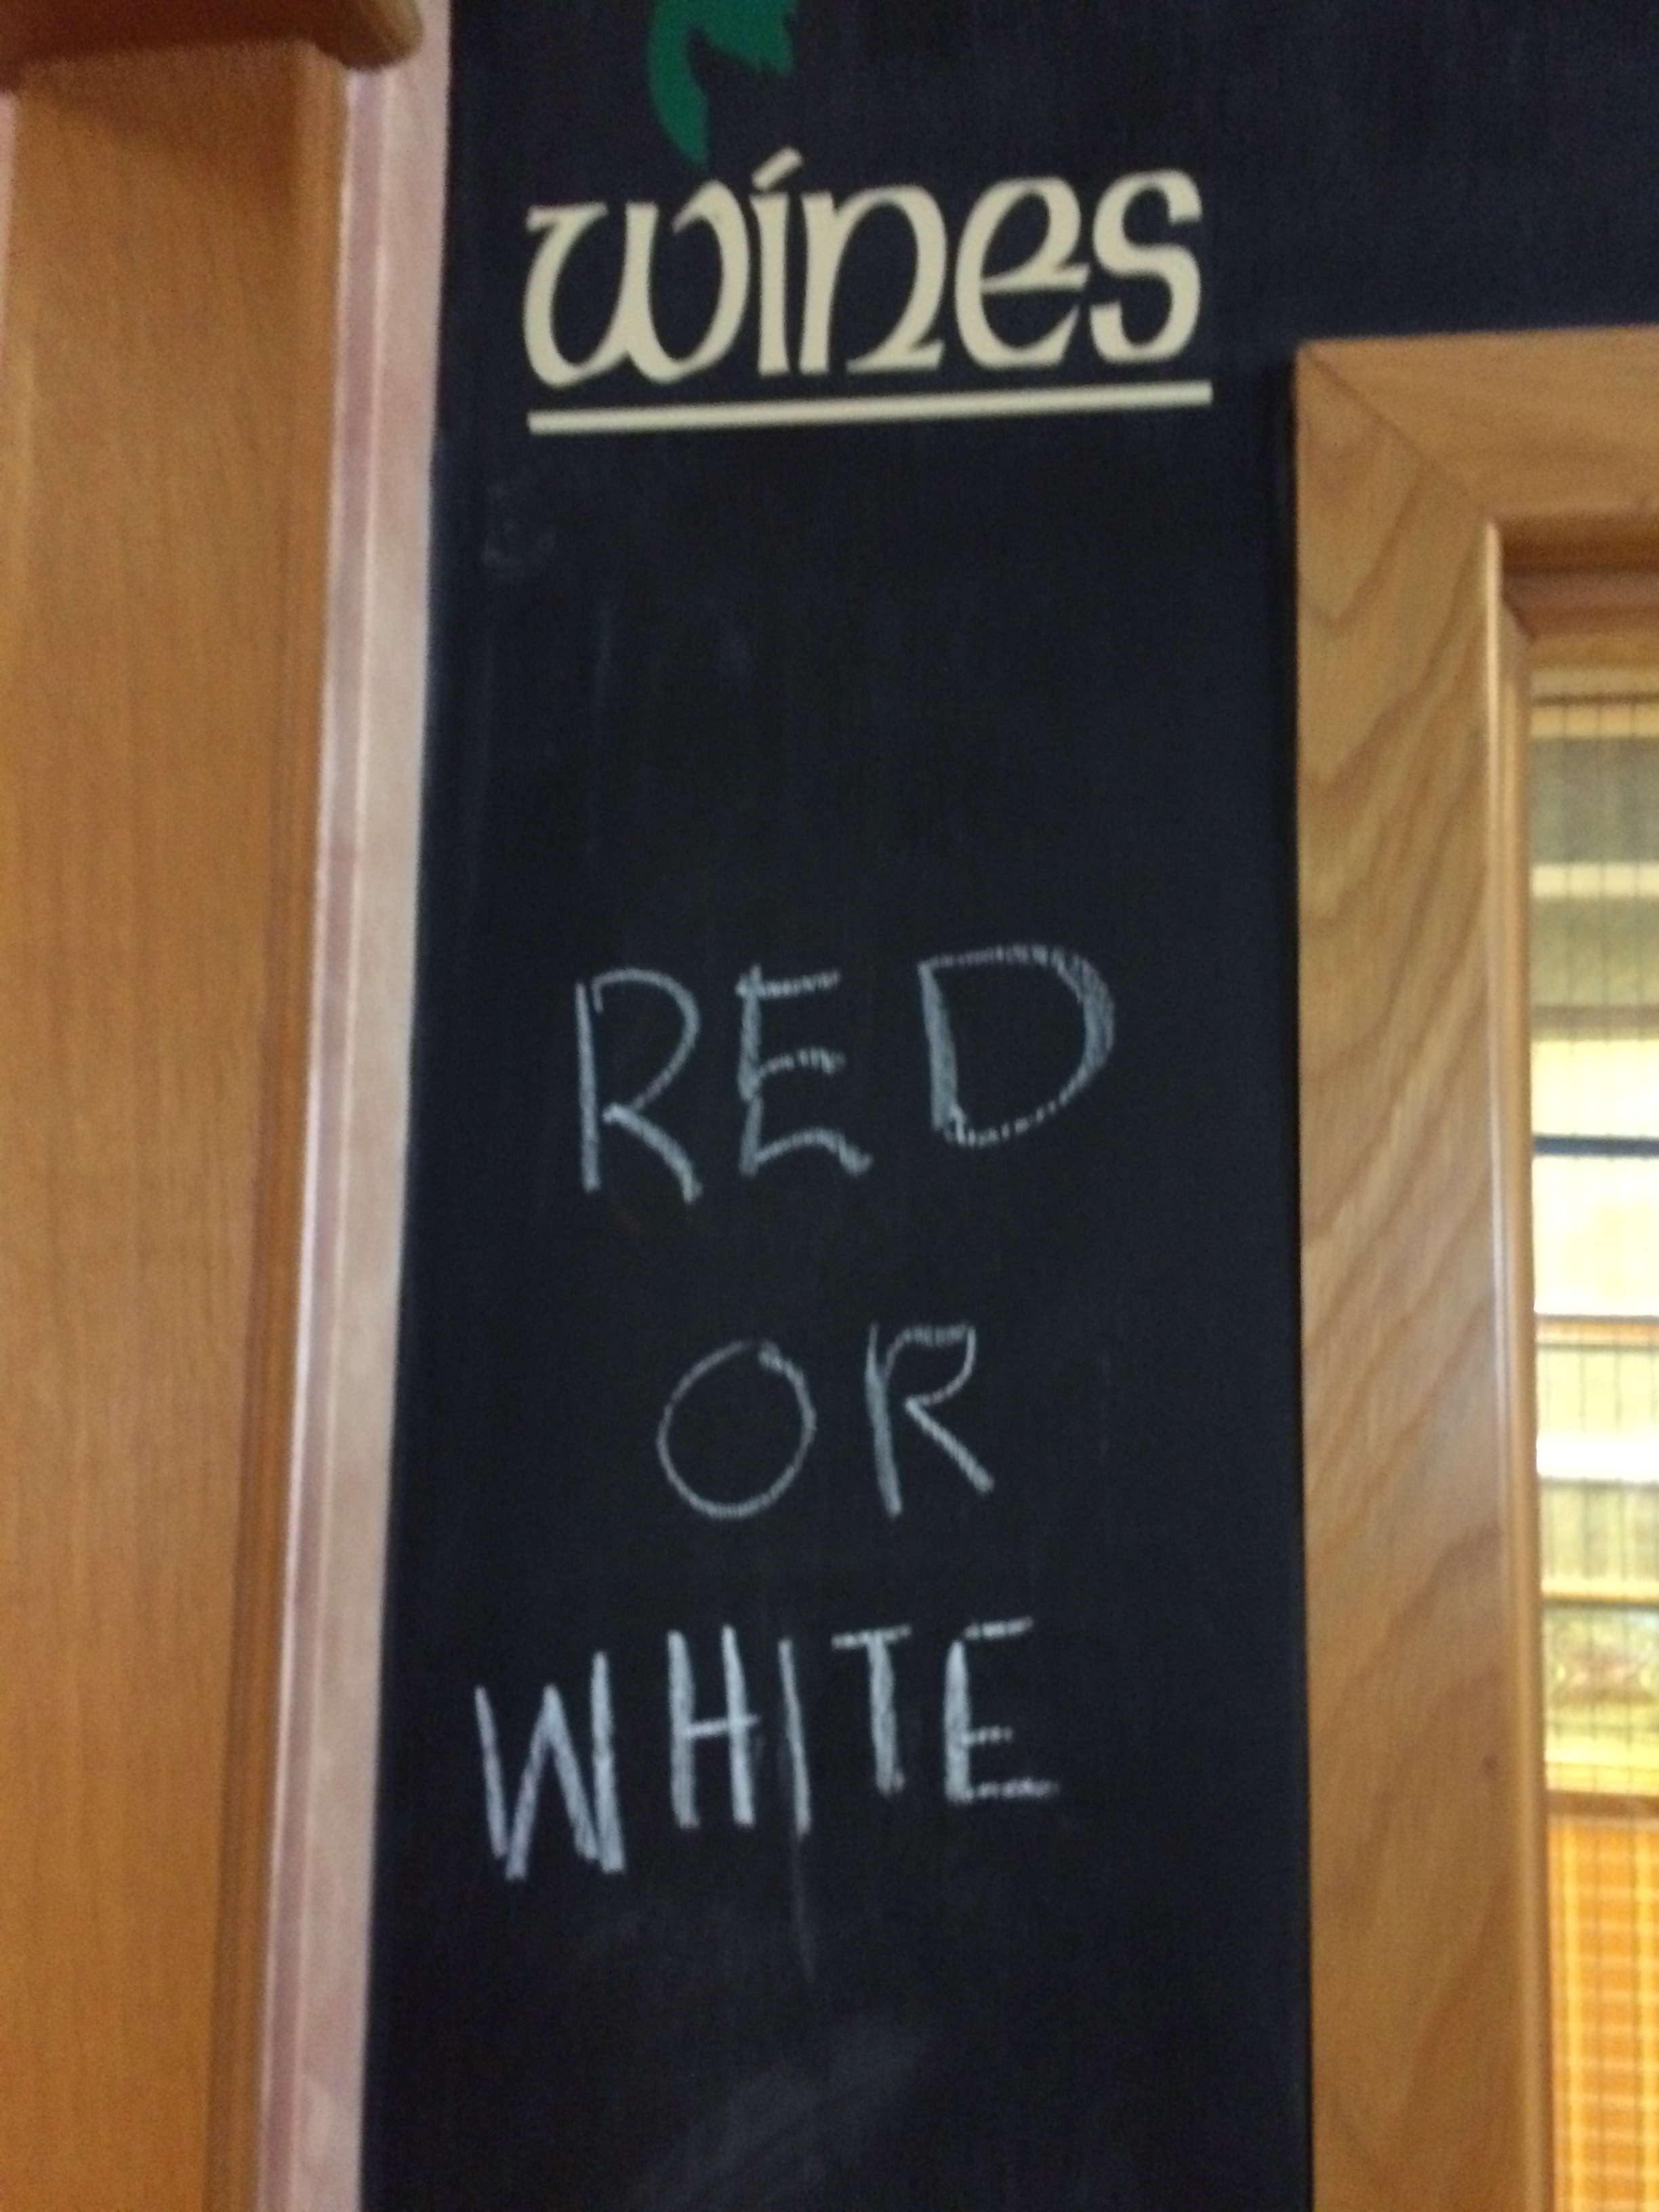 wines
RED
OR
WHITE